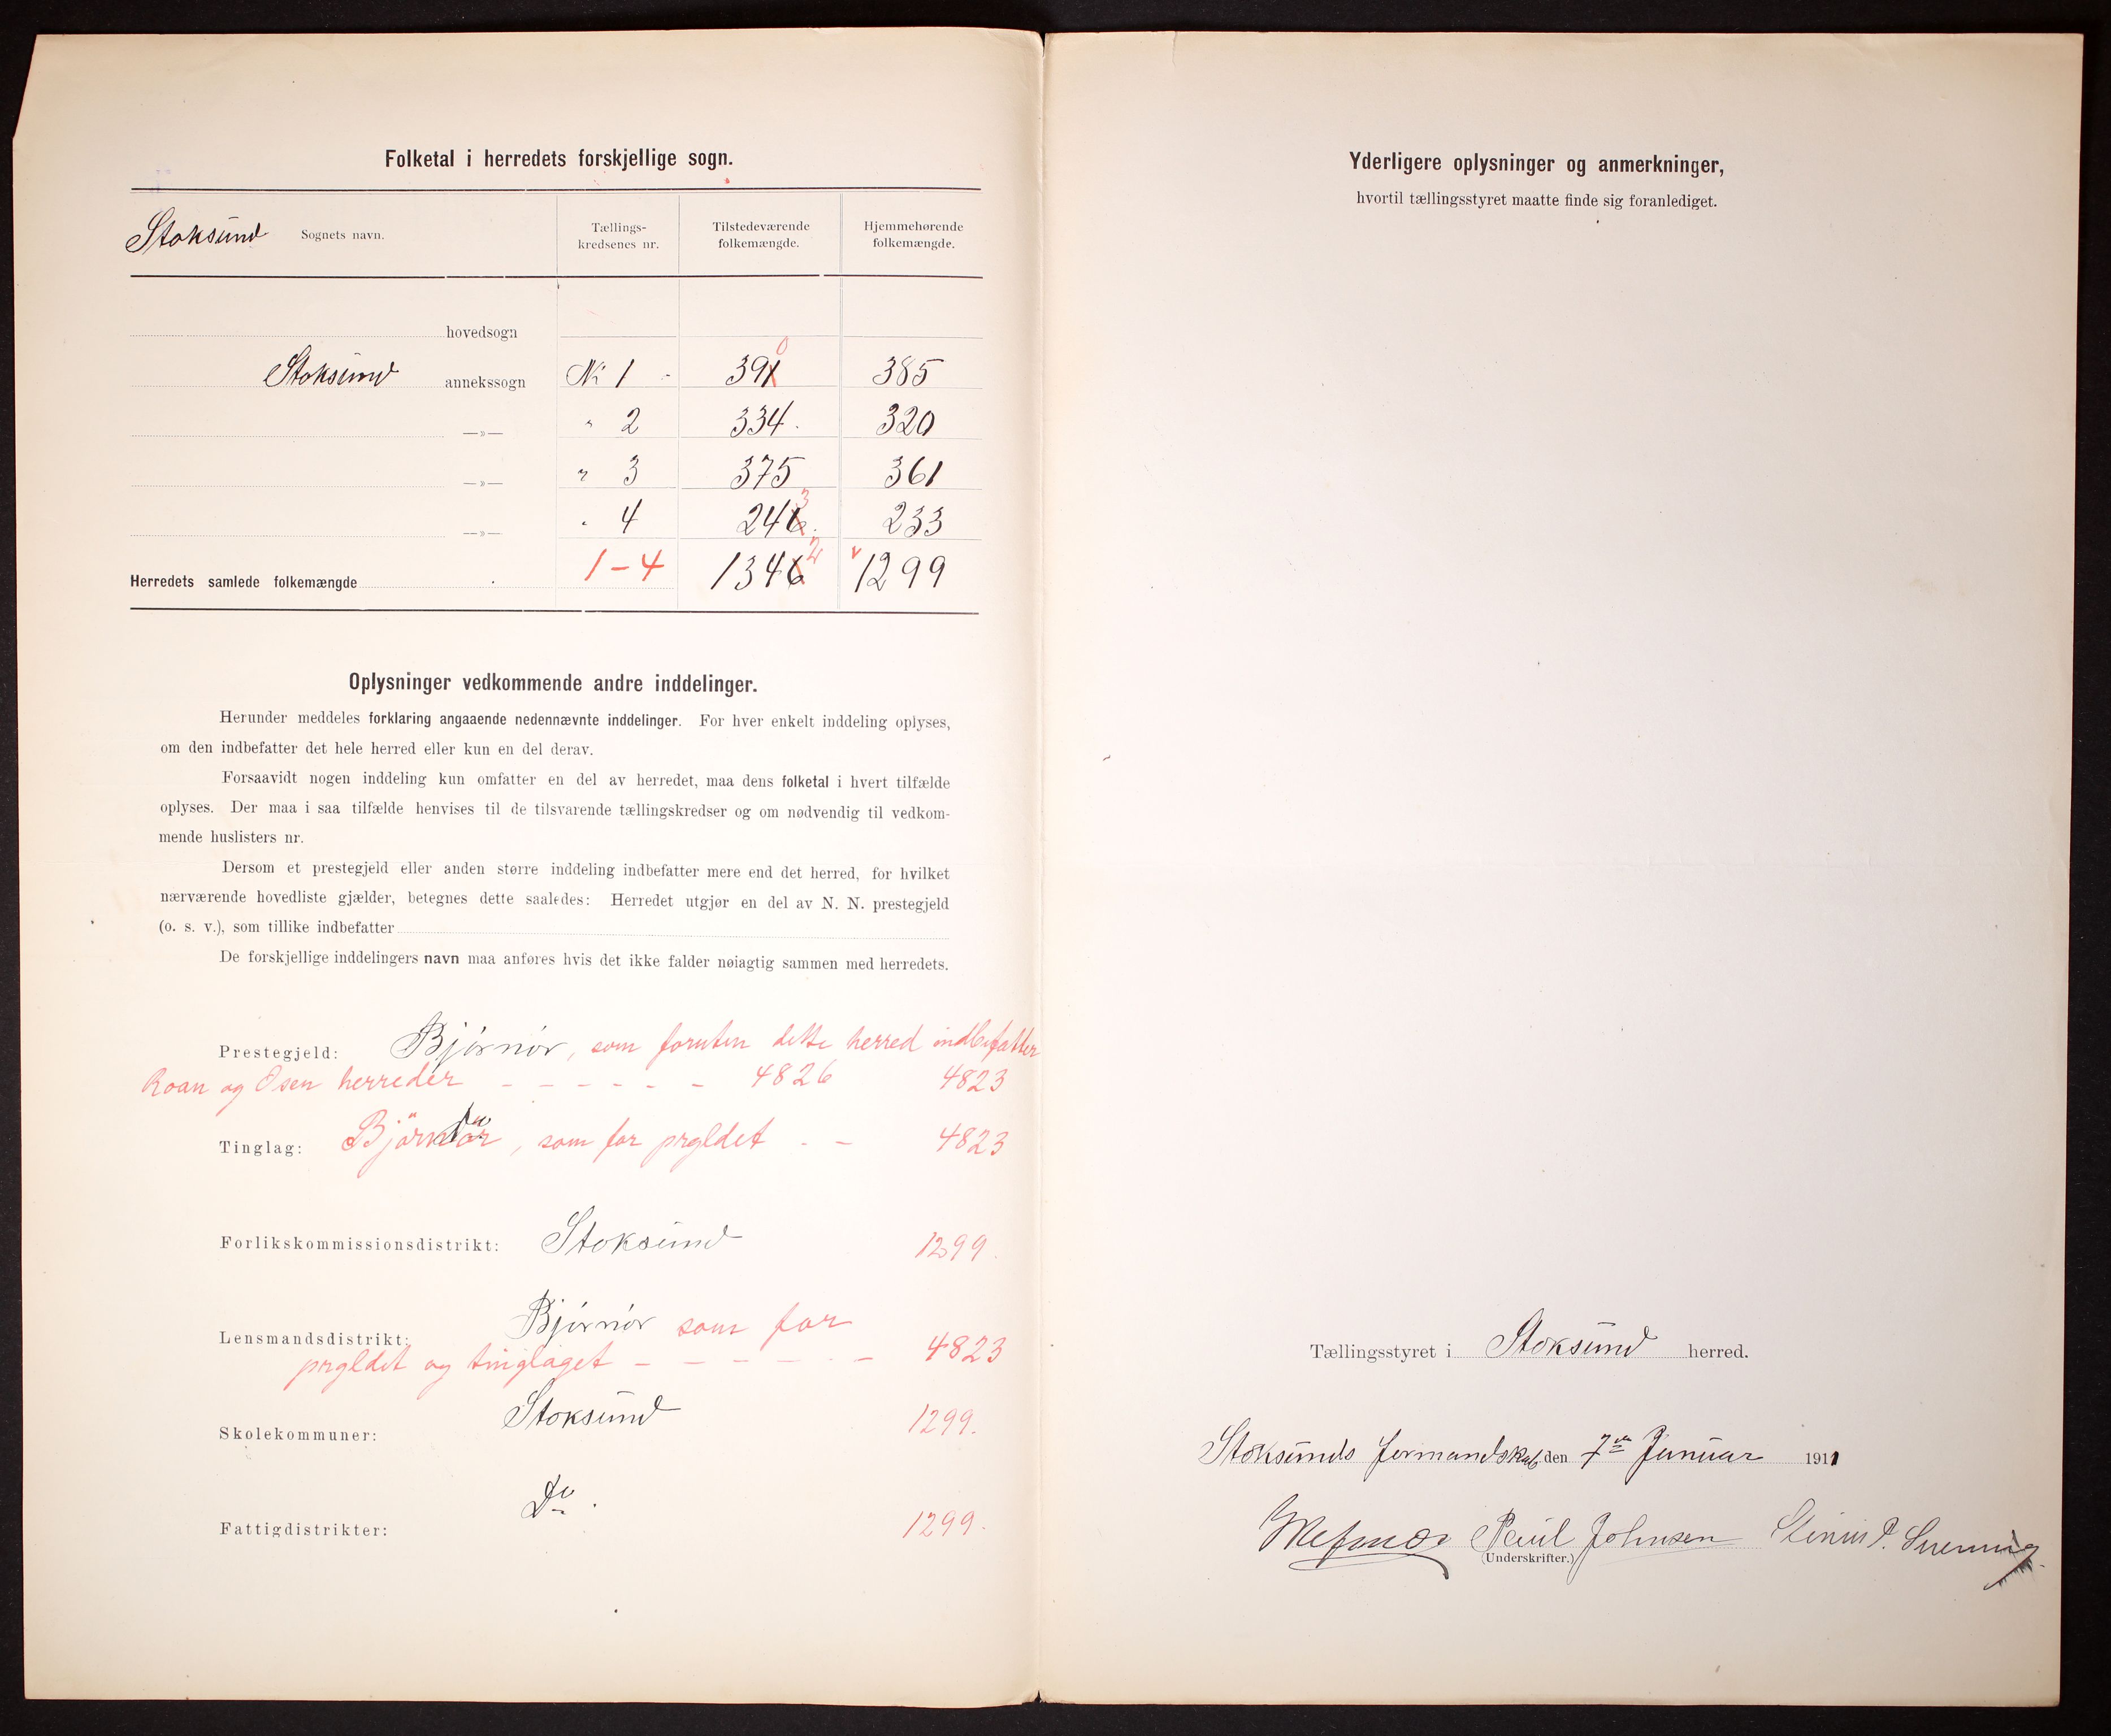 Folketal i herredets forskjellige sogn.
Stoksund Sognets navn. Tællings-kredsenes nr. Tilstedeværende folkemængde. Hjemmehørende folkemængde.
hovedsogn
0
Stoksund annekssogn Nr 1 391 385
—»— " 2 334. 320
—»— " 3 375 361
3
—»— " 4 246. 233
2
Herredets samlede folkemængde 1-4 1346 1299
Oplysninger vedkommende andre inddelinger.
Herunder meddeles forklaring angaaende nedennævnte inddelinger. For hver enkelt inddeling oplyses,
om den indbefatter det hele herred eller kun en del derav.
Forsaavidt nogen inddeling kun omfatter en del av herredet, maa dens folketal i hvert tilfælde
oplyses. Der maa i saa tilfælde henvises til de tilsvarende tællingskredser og om nødvendig til vedkom-
mende huslisters nr.
Dersom et prestegjeld eller anden større inddeling indbefatter mere end det herred, for hvilket
nærværende hovedliste gjælder, betegnes dette saaledes: Herredet utgjør en del av N. N. prestegjeld
(o. s. v.), som tillike indbefatter
De forskjellige inddelingers navn maa anføres hvis det ikke falder nøiagtig sammen med herredets.
Prestegjeld: Bjørnør, som foruten dette herred indbefatter
Roan og Osen herreder - - - - - - 4826 4823
Tinglag: Björnör, som for prgldet - - 4823
Forlikskommissionsdistrikt: Stoksund 1299.
Lensmandsdistrikt: Bjørnør som for
prgldet og tinglaget - - - - - - 4823
Skolekommuner: Stoksund 1299.
Fattigdistrikter: Do. 1299.
Yderligere oplysninger og anmerkninger,
hvortil tællingsstyret maatte finde sig foranlediget.
Tællingsstyret i Stoksund herred.
Stoksunds formandskab, den 7de Januar 1911
Paul Johnsen
(Underskrifter.)